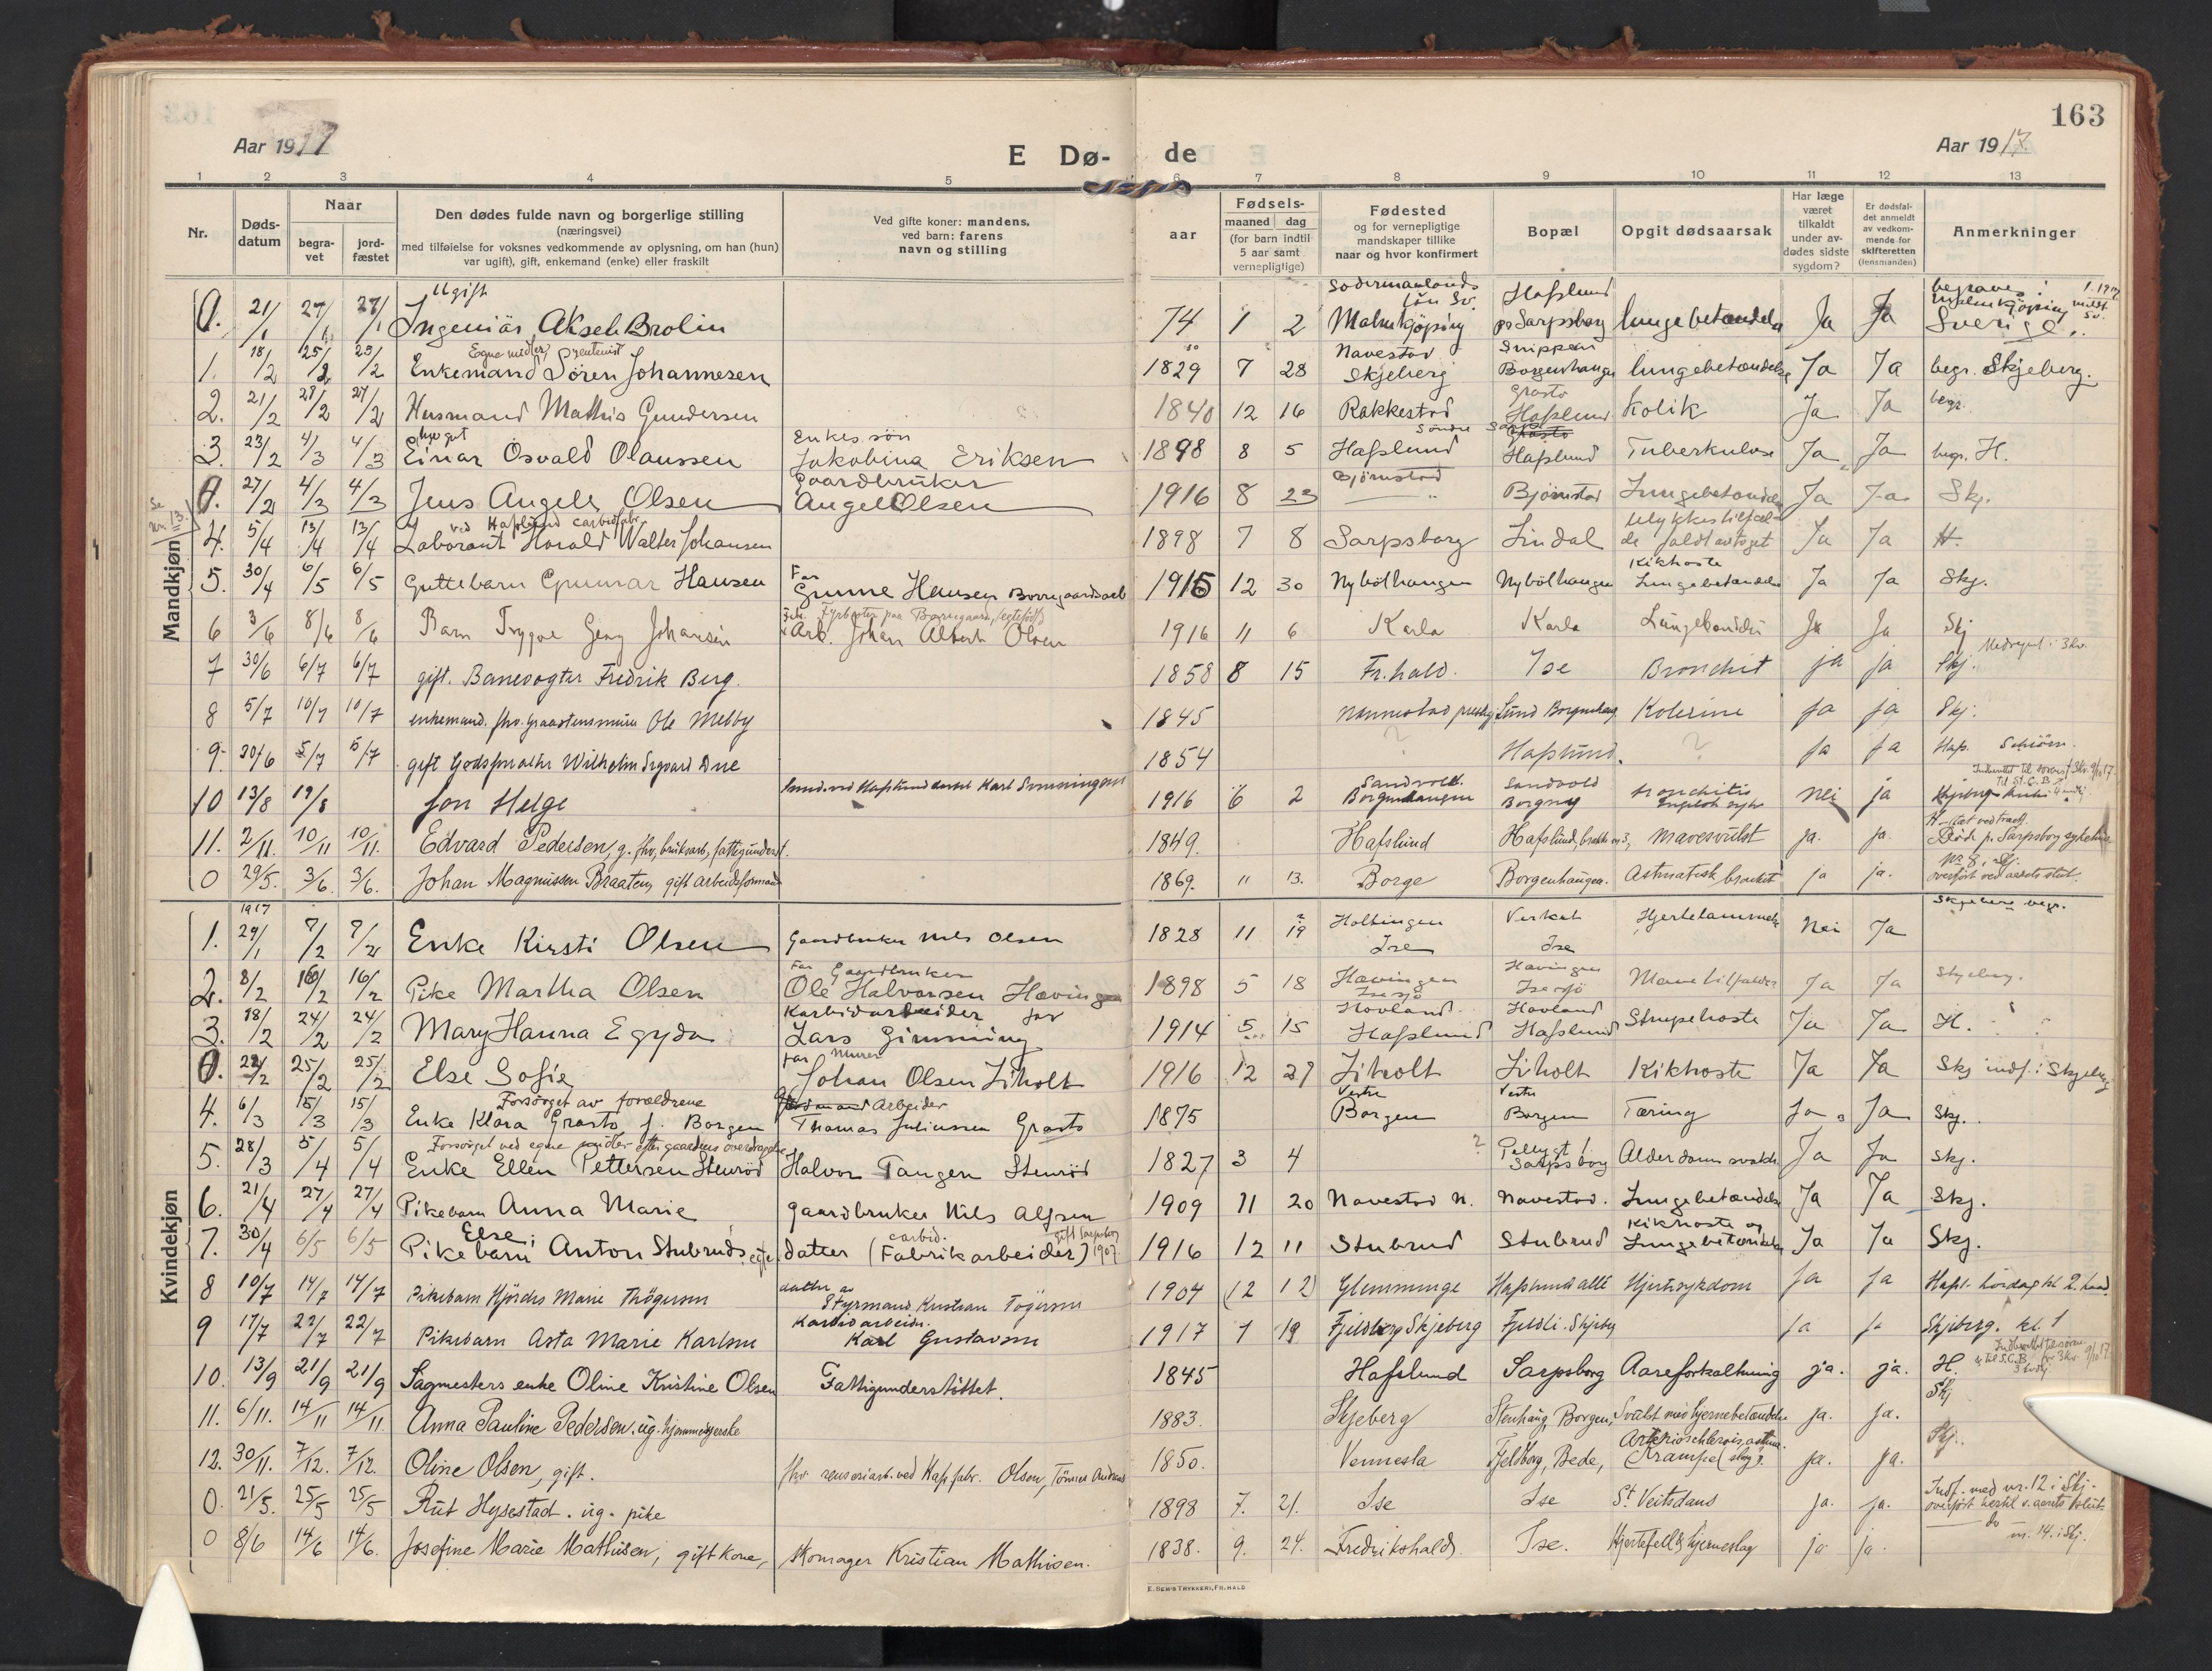 163
Aar 1917
E Dø- de
Aar 1917.
1 2 3 4 5 6 7 8 9 10 11 12 13
Nr.
Døds-
datum
Naar
begra-
vet
jord-
fæstet
Den dødes fulde navn og borgerlige stilling
(næringsvei)
med tilføielse for voksnes vedkommende av oplysning, om han (hun)
var ugift), gift, enkemand (enke) eller fraskilt
Ved gifte koner: mandens,
ved barn: farens
navn og stilling
Fødsels-
aar
maaned dag
(for barn indtil
5 aar samt
vernepligtige)
Fødested
og for vernepligtige
mandskaper tillike
naar og hvor konfirmert
Bopæl
Opgit dødsaarsak
Har læge
været
tilkaldt
under av-
dødes sidste
sygdom?
Er dødsfal-
det anmeldt
av vedkom-
mende for
skifteretten
(lensmanden)
Anmerkninger
Mandkjøn
0. 21/1 27/1 27/1 Ugift Ingeniör Aksel Brolin 74 1 2 Södermanlands län Sv. Malmköping Hafslund pr Sarpsborg lungebetændelse Ja Ja begraves i Malmköping Sverige
1. 18/2 25/2 25/2 Egne midler Enkemand Sören Johannesen 1829 7 28 Navestad Skjeberg Snippen Borgenhaugen lungebetændelse Ja Ja begr. Skjeberg.
2. 21/2 28/2 Husmand Mathis Gundersen 1840 12 16 Rakkestad Grasto Hafslund Kolik Ja Ja begr.
3. 23/2 4/3 4/3 Einar Osvald Olaussen Enkes sön Jakobina Eriksen 1898 8 5 Söndre Hafslund Hafslund Tuberkulose Ja Ja begr. H.
0. 27/2 4/3 4/3 Jens Angell Olsen Gaardbruker Angel Olsen 1916 8 23 Björnstad Björnstad Lungebetændelse Ja Ja Skj.
se nr. 13.
4. 5/4 13/4 13/4 Laborant ved Hafslund carbidfabr. Harald Walter Johansen 1898 7 8 Sarpsborg Lindal Ulykkestilfæl- de faldt av toget Ja Ja H.
5. 30/4 6/5 6/5 Guttebarn Gunnar Hansen Far Gunne Hansen Borregaardsarb 1915 12 30 Nybölhaugen Nybölhaugen Kikhoste Lungebetændelse Ja Ja Skj.
6 3/6 8/6 8/6 Barn Trygve Georg Johansen Arb. Johan Albert Olsen 1916 11 6 Karla Karla Lungebetændelse Ja Ja Skj
7 30/6 6/7 6/7 gift. Banevogter Fredrik Berg. 1858 8 15 Fr.hald. Ise Bronchit ja ja Skj. Medregnet i 3kv.
8 5/7 10/7 10/7 enkemand. fhv. graastensminer Ole Melby 1845 Nannestad prestegj Lund Borgenhaug Kolerine ja ja Skj.
9. 30/6 5/7 5/7 gift Godsforvalter Wilhelm Sigvard Due 1854 ? Hafslund. ? ja ja Hafs.
10 13/8 19/8 Jon Helge smed ved Hafslund Karl Simmingsen 1916 6 2 Sandvold. Borgenhaugen Sandvold Borgen bronchitis Engelsk syke nei ja
11. 2/11. 10/11 10/11. Edvard Pedersen, g. fhv. bruksarb, fattigunderst. 1849. Hafslund Hafslund, brakke no 3, mavesvulst ja. ja. Döde p. Sarpsborg sykehus
0 29/5. 3/6. 3/6. Johan Magnussen Braaten, gift arbeidsformand 1869. 11 13. Borge Borgenhaugen. Astmatisk bronkit ja ja. Nr 8, Skj. overfört ved aarets slut.
Kvindekjøn
1917
1. 29/1 7/2 7/2 Enke Kirsti Olsen Gaardbruker Nils Olsen 1828 11 19 Holtingen Ise Verket Ise Hjertelammelse Nei Ja Skjeberg begr.
2. 8/2 16/2 16/2 Pike Martha Olsen Far Gaardbruker Ole Halvorsen Hævingen 1898 5 18 Hævingen Isesjö Hævingen Isesjö Mavetilfælde Ja Ja Skjeberg.
3. 18/2 24/2 24/2 Mary Hanna Egyda Karbidarbeider far Lars Gimming 1914 5. 15 Hovland. Hafslund Hovland Hafslund Strupehoste Ja Ja H.
0. 22/2 25/2 25/2 Else Sofie far Murer Johan Olsen Liholt 1916 12 27 Liholt Liholt Kikhoste Ja Ja Skj indf. i Skjeberg
4. 6/3 15/3 15/3 Forsörget av forældrene Enke Klara Grasto f. Borgen Arbeider Thomas Juliussen Grasto 1875 Vestre Borgen Vestre Borgen Tæring Ja Ja Skj.
5. 28/3 5/4 5/4 Forsörget ved egne midler efter gaardens overdragelse Enke Ellen Pettersen Stenröd Halvor Tangen Stenröd 1827 3 4 ? Pellygt i Sarpsborg Alderdomssvakh. Ja Ja Skj.
6. 21/4 27/4 27/4 Pikebarn Anna Marie gaardbruker Nils Alfsen 1909 11 20 Navestad N. Navestad. Lungebetændelse Ja Ja Skj.
7. 30/4 6/5 6/5 Pikebarn Else; Anton Stubruds egte datter (carbid. Fabrikarbeider) gift Sarpsborg 1907. 1916 12 11 Stubrud Stubrud Kikhoste og Lungebetændelse Ja Ja Skj.
8 10/7 14/7 14/7 Pikebarn Hjördis Marie Thögersen datter av Styrmand Kristian Tögersen 1904 12 12 Glemminge Hafslund allé Hjertesykdom ja ja Hafsl. lördag kl 2.
9 17/7 22/7 22/7 Pikebarn Asta Marie Karlsen Karbidarbeider. Karl Gustavsen 1917 1 19 Fjeldberg Skjeberg Fjeldli. Skjeberg ja ja Skjeberg. kl. 1
10. 13/9 21/9 21/9 Sagmesters enke Oline Kristine Olsen Fattigunderstöttet. 1845 Hafslund Sarpsborg Aareforkalkning ja. ja. H.
11. 6/11. 14/11 14/11. Anna Pauline Pedersen. ug. hjemmesyerske 1883. Skjeberg Stenhaug, Borgen, Svulst med hjernebetændelse ja. ja. Skj
12. 30/11. 7/12. 7/12. Oline Olsen, gift. fhv renseriarb. ved Hafs.fabr. Olsen, Tönnes Andreas 1850. Vennesla Fjeldborg, Bede, Arterioschlerois, astma. Krampe (slag?) ja. ja. Skj.
0. 21/5. 25/5 25/5 Rut Hysestad. ug. pike 1898 7. 21. Ise Ise St. Veitsdans ja. ja. Indf. med nr. 12 i Skj. overfört hertil v. aarets slut.
0 8/6 14/6 14/6. Josefine Marie Mathisen, gift kone, Skomager Kristian Mathisen. 1838. 9. 24. Fredrikshald. Ise. Hjertefeil & hjerneslag ja ja. do nr. 14. i Skj.
E. SEM'S TRYKKERI, FR.HALD